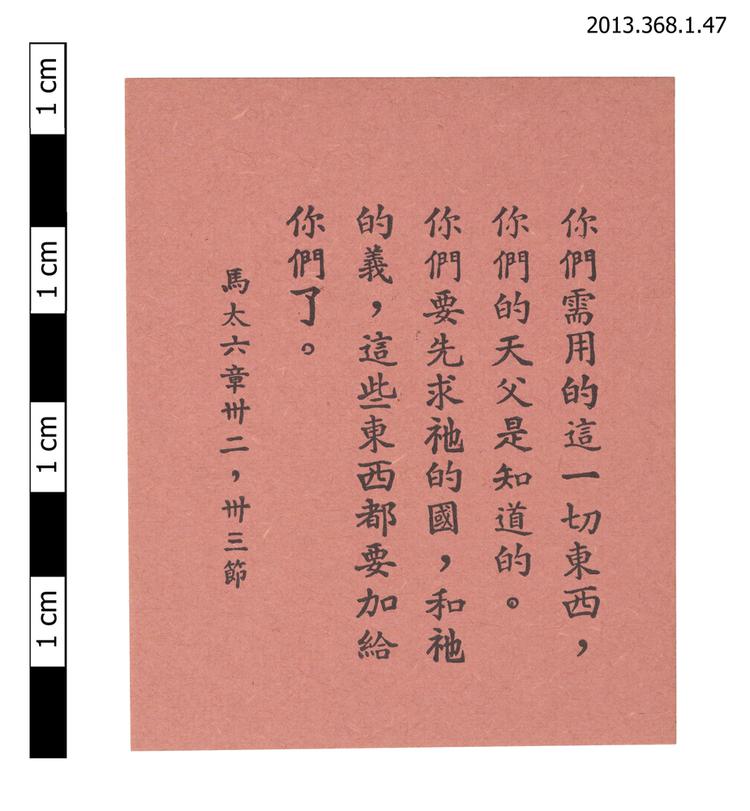 2013.368.1.47
你們需用的這一切東西，
你們的天父是知道的。
你們要先求祂的國，和祂
的義，這些東西都要加給
你們了。
馬太六章卅二，卅三節
1 cm
1 cm
1 cm
1 cm